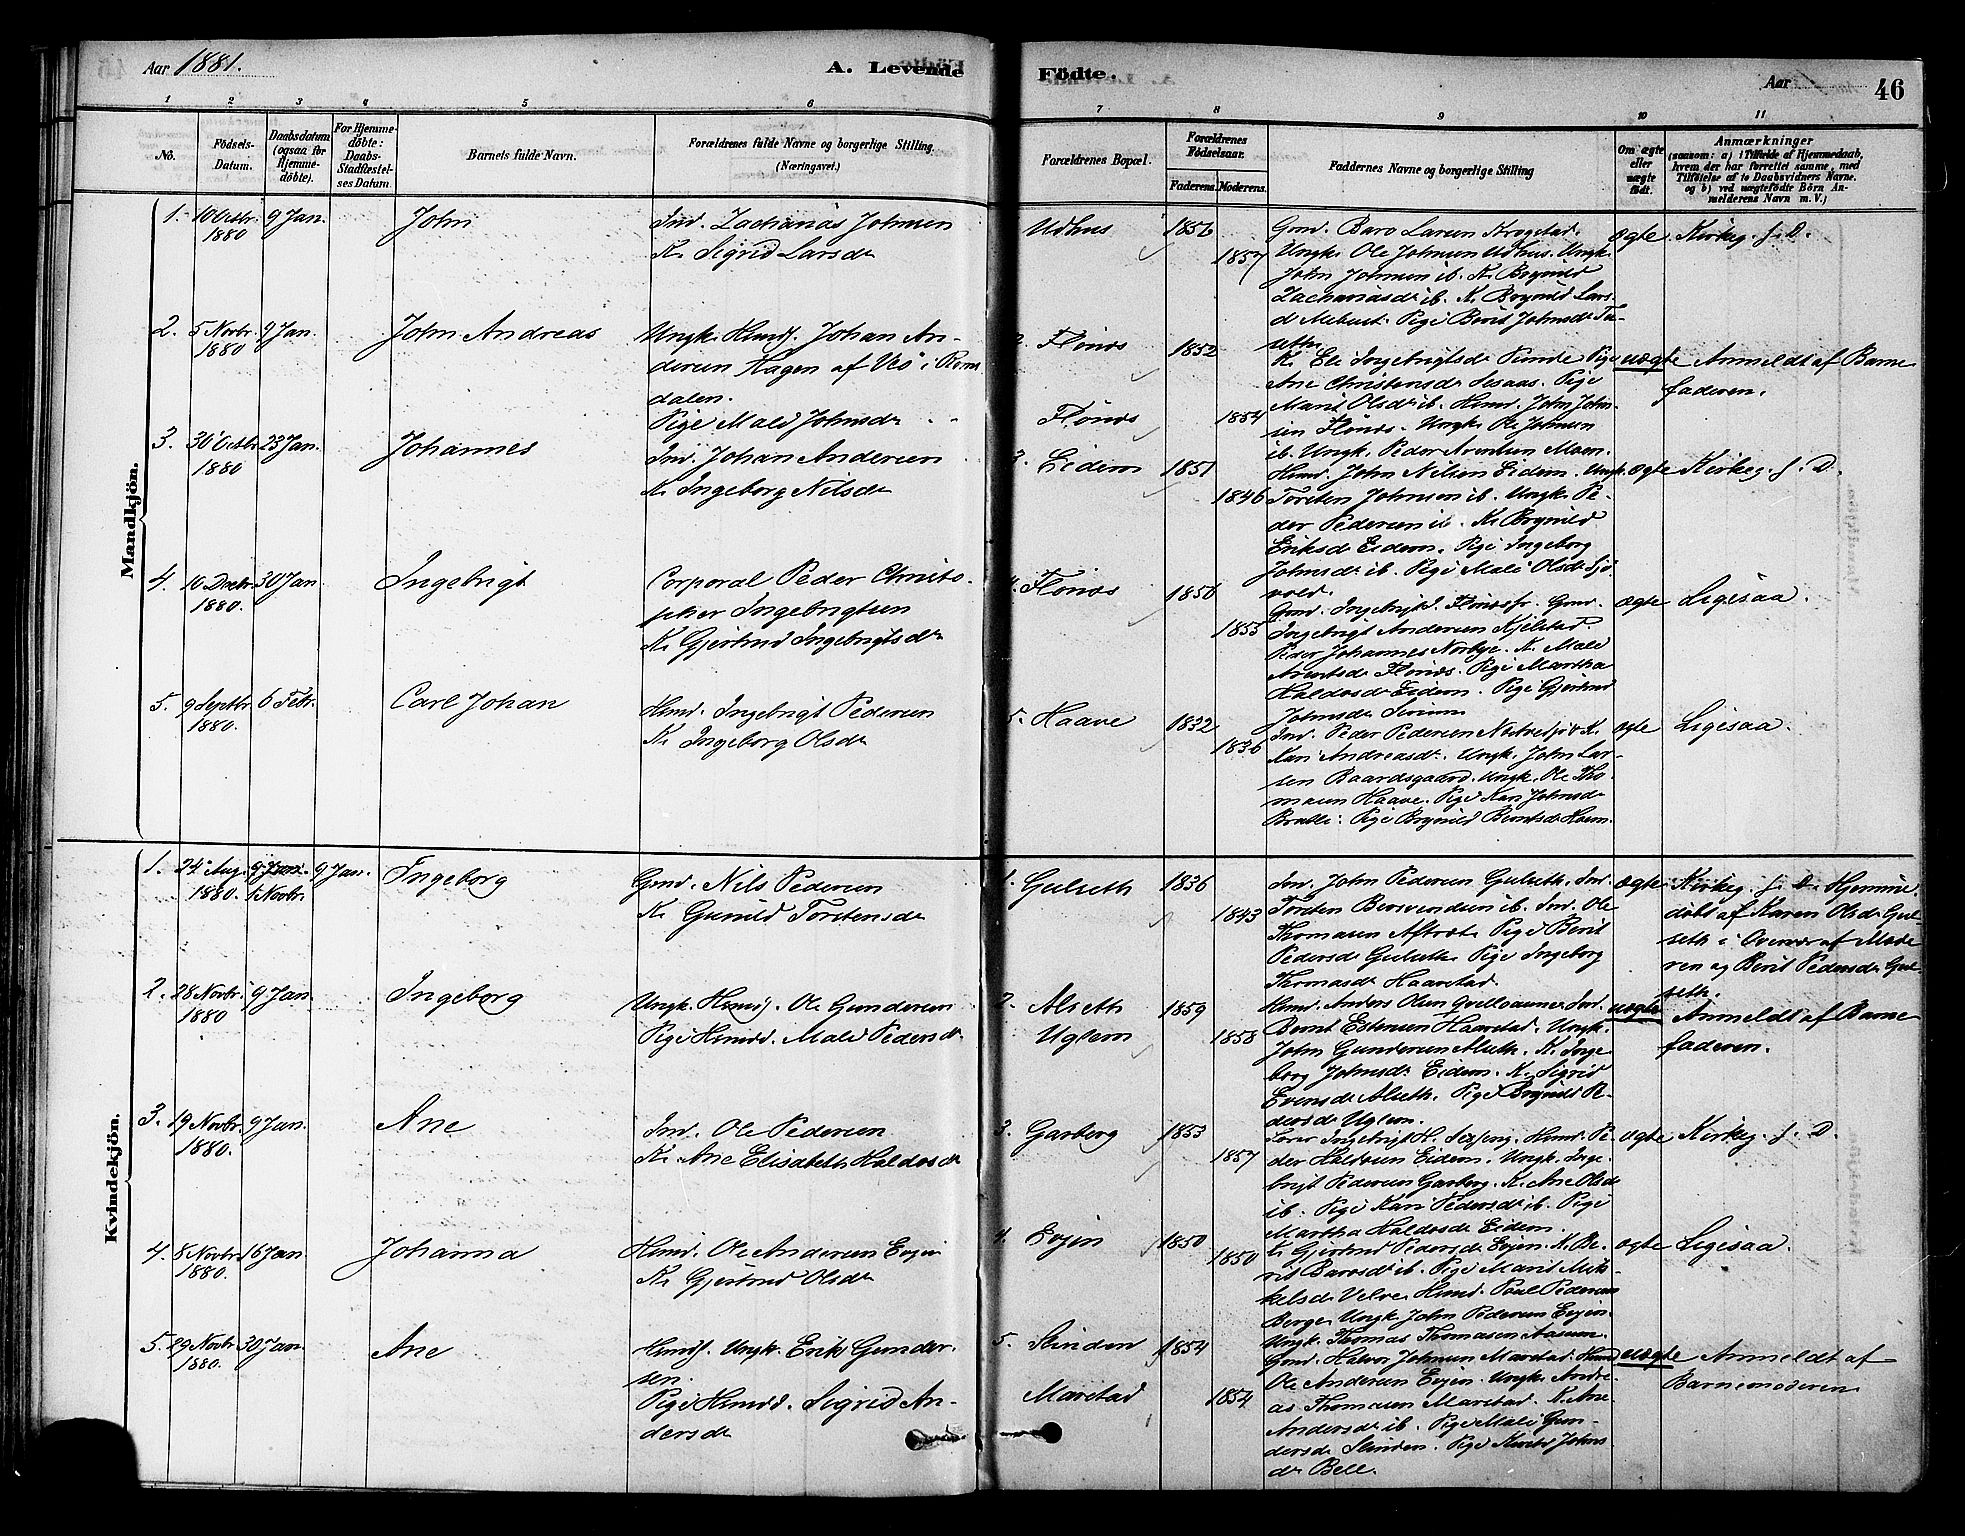 Aar 1881.
A. Levende
Födte.
Aar
46
1 2 3 4 5 6 7 8 9 10 11
No.
Födsels-Datum.
Daabsdatum (ogsaa for Hjemme-döbte).
For Hjemme-döbte: Daabs-Stadfæstel-ses Datum.
Barnets fulde Navn.
Forældrenes fulde Navne og borgerlige Stilling. (Næringsvei.)
Forældrenes Bopæl.
Forældrenes Födselsaar.
Faderens. Moderens.
Faddernes Navne og borgerlige Stilling
Om ægte eller uægte födt.
Anmærkninger
(saasom: a) i Tilfælde af Hjemmedaab,
hvem der har forrettet samme, med
Tilföielse af to Daabsvidners Navne.
og b) ved uægtefödte Börn An-
melderens Navn m. V.)
Mandkjön.
1. 10 Octbr. 1880 9 Jan. John
Ind. Zacharias Johnsen
K. Sigrid Larsdr
Udhus 1856 1857
Gmd. Baro Larsen Krogstad.
Ungk. Ole Johnsen Udhus. Ungk.
John Johnsen ib. K. Brynild
Zachariasdr ib. K. Brynild Lars-
ægte Kirkeg. f. D.
2. 5 Novbr. 1880 9 Jan. John Andreas
Ungk. Hmdf. Johan An-
dersen Hagen af Veö i Roms
dalen.
Pige Mali Johnsdr
2. Flönæs 1852
Flönæs 1854
K. Eli Ingebrigtsdr Pige
Ane Christensdr Sesaas. Pige
Marit Olsdr ib. Hmd. John John-
sen Flönæs. Ungk. Ole Johnsen
ib. Ungk. Peder Arntsen Moen.
uægte Anmeldt af Barne
faderen.
3. 30 Octbr 1880 23 Jan. Johannes
Ind. Johan Andersen
K. Ingeborg Nilsdr
3. Eidem 1851 1846
Hmd. John Nilsen Eidem. Ungk.
Torsten Johnsen ib. Ungk. Pe-
der Pedersen ib. K. Brynild
Eriksdr Eidem. Pige Ingeborg
Johnsdr ib. Pige Mali Olsdr Sjö
vold.
ægte Kirkeg. f. D.
4. 10 Decbr 1880. 30 Jan Ingebrigt
Corporal Peder Christo-
pher Ingebrigtsen
K. Gjertrud Ingebrigtsdr
4. Flönæs 1850 1855
Ingebrigt Andersen Kjelstad.
Peder Johannes Norbye. K. Mali
Arntsdr Flönæs. Pige Martha
Haldosdr Eidem. Pige Gjertrud
Johnsdr
ægte Ligesaa.
5. 9 Septbr 1880. 6 Febr. Carl Johan
Hmd. Ingebrigt Pedersen
K. Ingeborg Olsdr
5. Haave 1832 1836
Ind. Peder Pedersen K.
Kari Andreasdr. Ungk. John Lar-
sen Baardsgaard. Ungk. Ole Tho-
masen Haave. Pige Kari Johnsdr
Pige Brynild Berntsdr
ægte Ligesaa.
Kvindekjön.
1. 24 Aug. 1880. 9 Jan. 1 Novbr. 9 Jan. Ingeborg
Gmd. Nils Pedersen
K. Gunild Torstensdr
1. Gulseth 1836 1843
Ind. John Pedersen Gulseth. Ind.
Torsten Bersvendsen ib. Ind. Ole
Thomasen Pige Berit
Pedersdr Gulseth. Pige Ingeborg
Thomasdr Haarstad.
ægte Kirkeg. f. D. Hjemme
döbt af Karen Olsdr Gul-
seth i Overvær af Mode
ren og Berit Pedersdr Gul-
seth.
2. 28 Novbr. 1880 9 Jan. Ingeborg
Ungk. Hmdf. Ole Gundersen
Pige Hmdd. Mali Pedersdr
2. Alseth 1859
Uglem 1858
Hmd. Anders Olsen Ind.
Bernt Estensen Haarstad. Ungk.
John Gundersen Alseth. K. Inge
borg Johnsdr Eidem. K. Sigrid
Evensdr Alseth. Pige Brynild Pe-
dersdr Uglem.
uægte Anmeldt af Barne
faderen.
3. 19 Novbr. 1880. 9 Jan. Ane
Ind. Ole Pedersen
K. Ane Elisabeth Haldosdr
3. Garberg 1853 1857
Hmd. Pe-
der Haldosen Eidem. Ungk. Inge-
brigt Pedersen Garberg. K. Ane Olsdr
ib. Pige Kari Pedersdr ib. Pige
Martha Haldosdr Eidem.
ægte Kirkeg. f. D.
4. 8 Novbr 1880. 16 Jan. Johanna
Hmd. Ole Andersen Evjen
K. Gjertrud Olsdr
4. Evjen 1850 1850
Gjertrud Pedersdr Evjen. K. Be-
rit Barosdr ib. Pige Marit Mik-
kelsdr Velve Hmd. Paul Pedersen
Berge. Ungk. John Pedersen Evjen.
Ungk. Thomas Thomasen Aasum.
ægte Ligesaa.
5. 29 Novbr 1880. 30 Jan. Ane
Hmdf. Ungk. Erik Gunder-
sen.
Pige Hmdd. Sigrid An-
dersdr
5. Slinden 1854
Marstad 1854
Gmd. Halvor Johnsen Marstad. Hmd
Ole Andersen Evjen. Ungk. Andre-
as Thomasen Marstad. K. Ane
Andersdr ib. Pige Mali Gun-
dersdr Slinden. Pige Johns
dr Bell.
uægte Anmeldt af
Barnemoderen